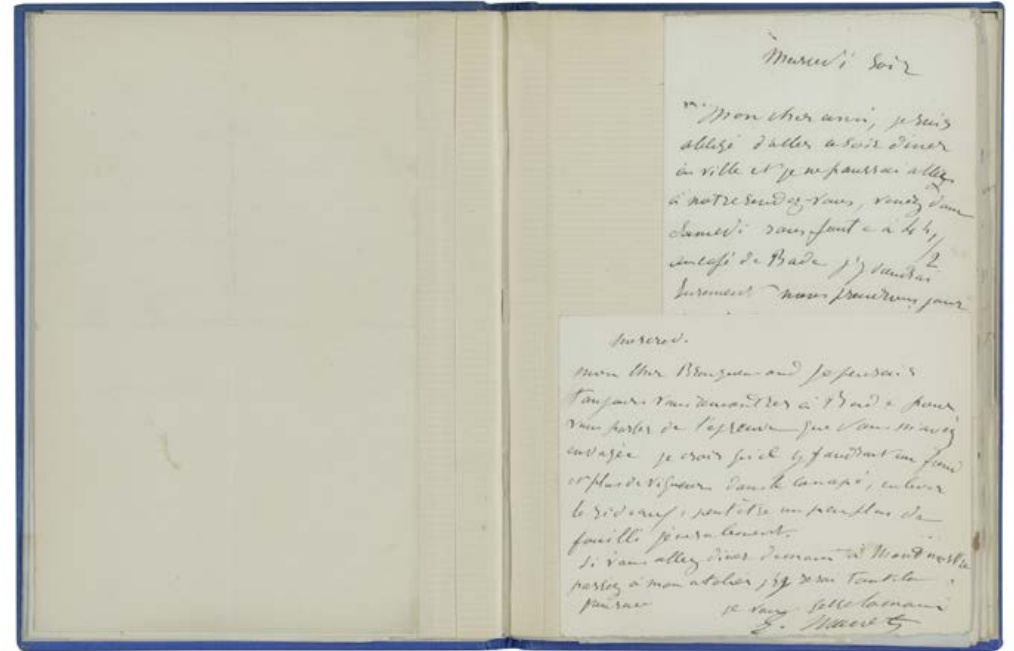 Mercredi Soir
mon cher ami, je suis
obligé d'aller ce soir diner
en ville et je ne pourrai aller
à notre rendez-vous, venez donc
Samedi sans faute à 4 h 1/2
au café de Bade j'y viendrai
surement nous prendrons jour
mercred.
mon cher je pensais
toujours vous rencontrer à Bade pour
vous parler de l'épreuve que vous m'avez
envoyée je crois qu'il y faudrait un fond
et plus de vigueur dans le canapé, enlever
le rideau, peut être un peu plus de
fouilli généralement.
Si vous allez diner demain à Montmartre
passez à mon atelier j'y serai toute la
je vous serre la main
E. Manet